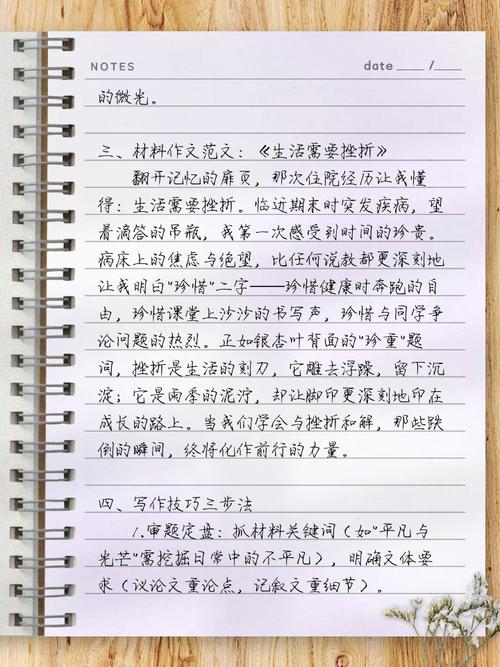 NOTES
date ____ /____
的微光。
三、材料作文范文：《生活需要挫折》
翻开记忆的扉页，那次住院经历让我懂
得：生活需要挫折。临近期末时突发疾病，望
着滴答的吊瓶，我第一次感受到时间的珍贵。
病床上的焦虑与绝望，比任何说教都更深刻地
让我明白"珍惜"二字——珍惜健康时奔跑的自
由，珍惜课堂上沙沙的书写声，珍惜与同学争
论问题的热烈。正如银杏叶背面的"珍重"题
词，挫折是生活的刻刀，它雕去浮躁，留下沉
淀；它是雨季的泥泞，却让脚印更深刻地印在
成长的路上。当我们学会与挫折和解，那些跌
倒的瞬间，终将化作前行的力量。
四、写作技巧三步法
1.审题定盘：抓材料关键词（如"平凡与
光芒"需挖掘日常中的不平凡），明确文体要
求（议论文重论点，记叙文重细节）。